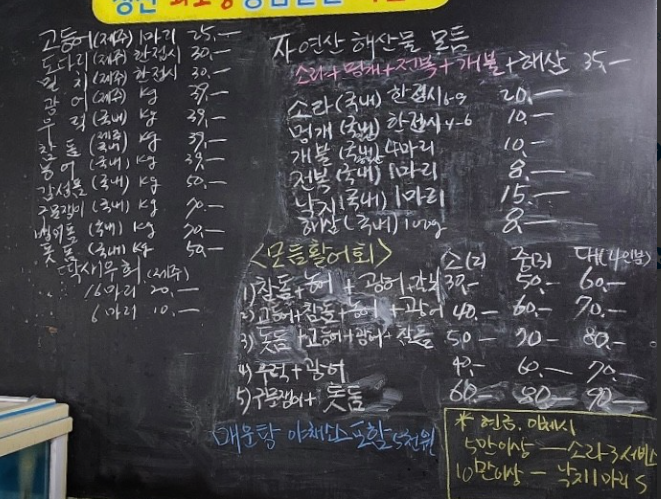 고등어(제주) 1마리 25.-
도다리(제주) 한접시 30.-
(제주) 한접시 30.-
광어 (제주) kg 39.-
우럭 (국내) kg 39.-
참돔 kg 39.-
농어 (국내) kg 39.-
감성돔 (국내) kg 50.-
구문쟁이 (국내) kg 70.-
(국내) kg 70.-
돗돔 (국내) kg 50.-
딱새우회 (제주)
16마리 20.-
6마리 10.-
자연산 해산물 모듬
소라+멍게+전복+개불+해삼 35.-
소라(국내) 한접시 20.-
멍게(국내) 한접시 4-6 10.-
개불(국내) 4마리 10.-
전복(국내) 1마리 8.-
낙지(국내) 1마리 15.-
해삼(국내) 100g 8.-
<모듬활어회> 소(2) 중(3) 대(4인분)
1) 참돔+농어+광어 50.- 60.-
2) 고등어+참돔+농어+광어 40.- 60.- 70.-
3) 돗돔+고등어+광어+참돔 50- 70- 80.-
4) 우럭+광어 60.- 70.-
5) 구문쟁이+돗돔 60- 80- 90-
매운탕 야채소스포함 5천원
* 현금.이체시
5만이상 — 소라3 서비스
10만이상 — 낙지1마리 S